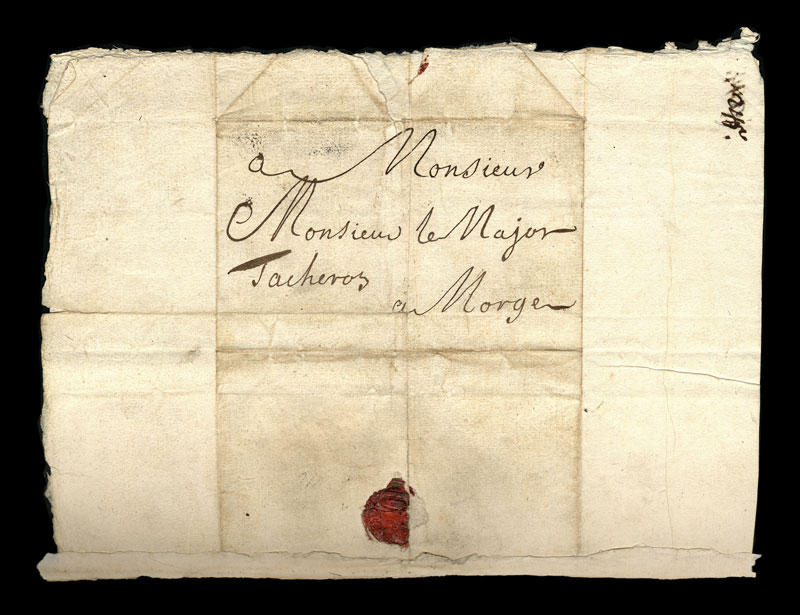 a Monsieur
Monsieur le Major
Tacheron
a Morge